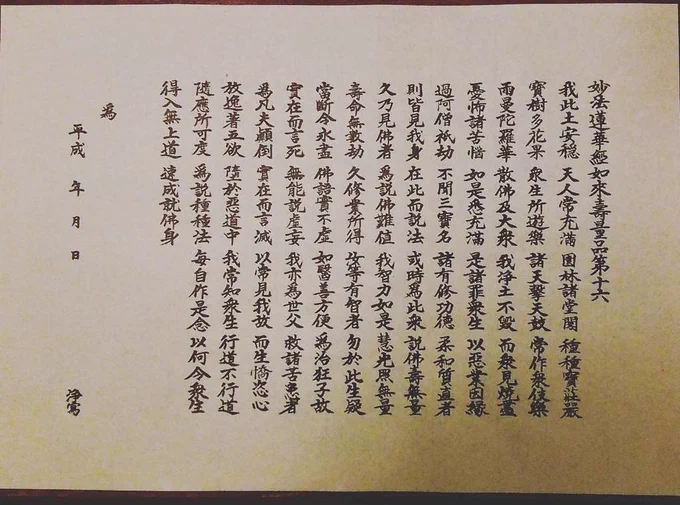 妙法蓮華經如來壽量品第十六
我此土安穏 天人常充滿 園林諸堂閣 種種寶莊嚴
寶樹多花果 衆生所遊樂 諸天撃天鼓 常作衆伎樂
雨曼陀羅華 散佛及大衆 我淨土不毀 而衆見燒盡
憂怖諸苦惱 如是悉充滿 是諸罪衆生 以惡業因縁
過阿僧祇劫 不聞三寶名 諸有修功德 柔和質直者
則皆見我身 在此而説法 或時為此衆 説佛壽無量
久乃見佛者 為説佛難値 我智力如是 慧光照無量
壽命無數劫 久修業所得 汝等有智者 勿於此生疑
當斷令永盡 佛語實不虚 如醫善方便 為治狂子故
實在而言死 無能説虚妄 我亦為世父 救諸苦患者
為凡夫顛倒 實在而言滅 以常見我故 而生憍恣心
放逸著五欲 墮於惡道中 我常知衆生 行道不行道
隨應所可度 為説種種法 毎自作是念 以何令衆生
得入無上道 速成就佛身
為
平成 年 月 日
浄寫